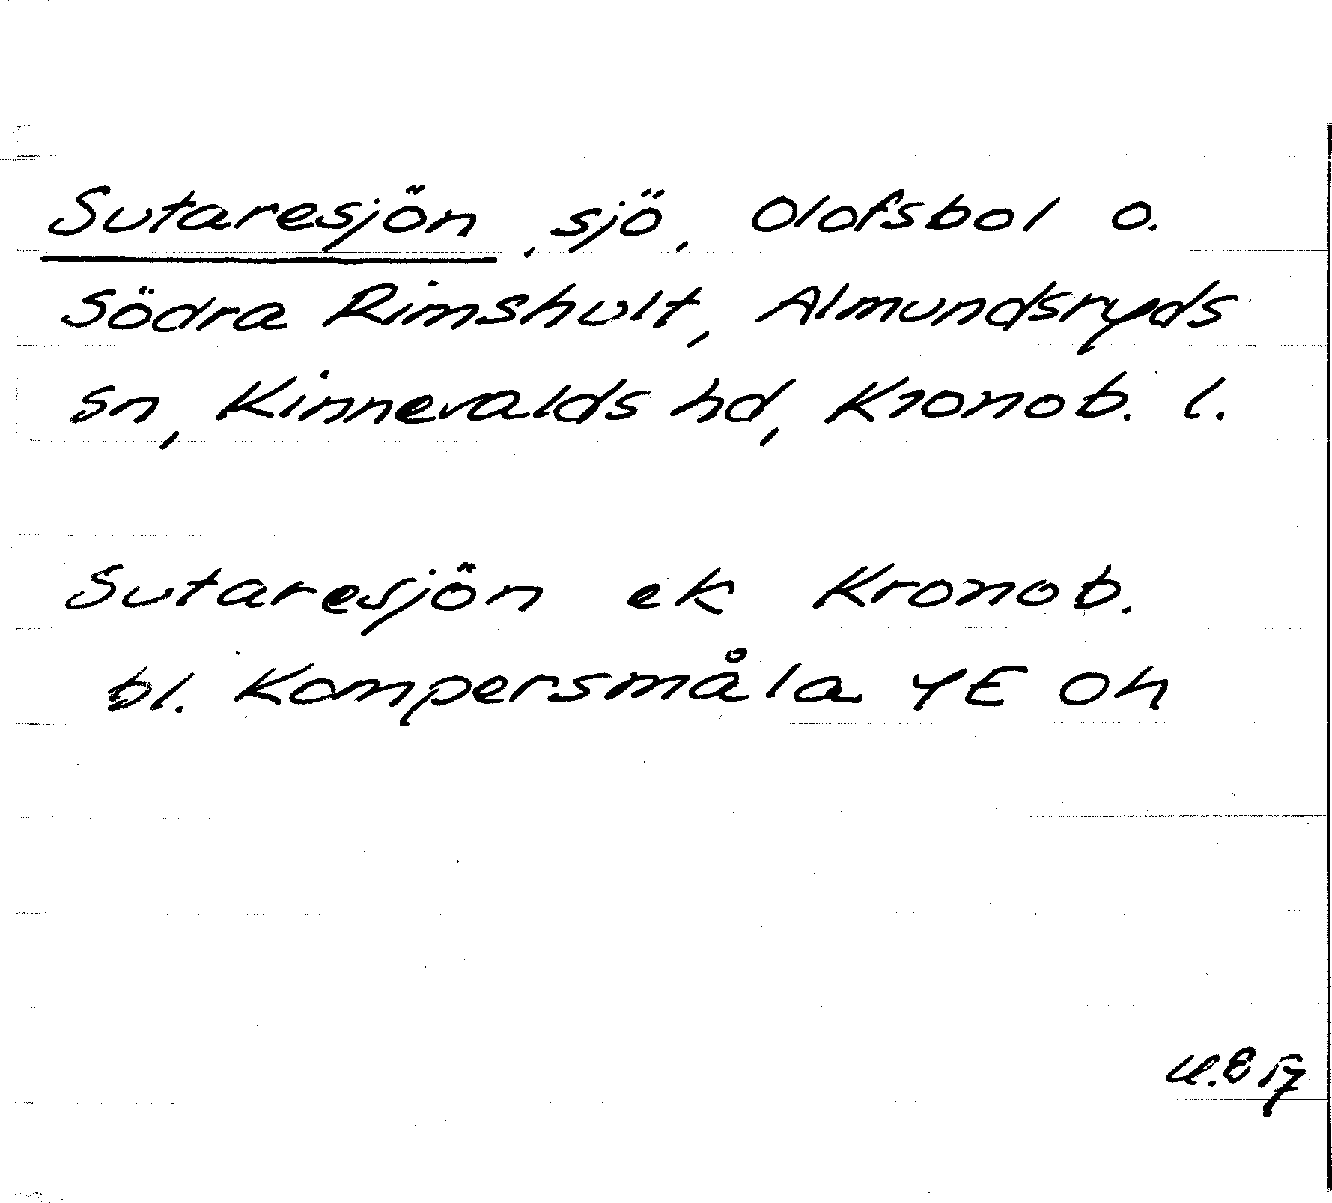 Sutaresjön, sjö, Olofsbol o.
Södra Rimshult, Almundsryds
sn, Kinnevalds hd, Kronob. l.
Sutaresjön ek Kronob.
bl. Kompersmåla 4E Oh